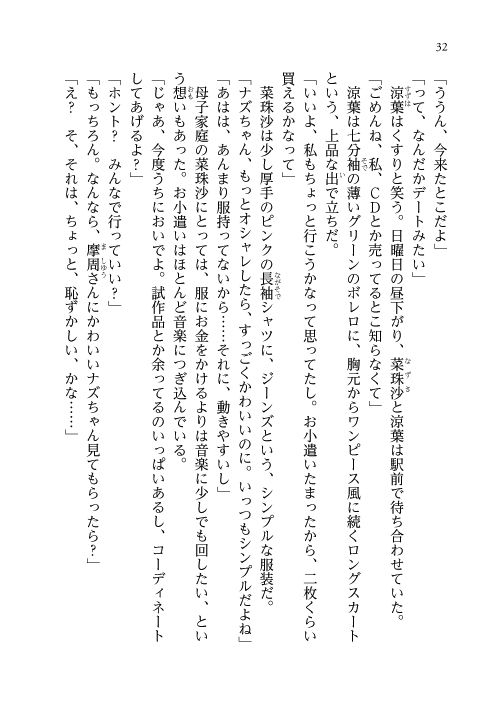 32
「ううん、今来たとこだよ」
「って、なんだかデートみたい」
涼葉はくすりと笑う。日曜日の昼下がり、菜珠沙と涼葉は駅前で待ち合わせていた。
「ごめんね、私、ＣＤとか売ってるとこ知らなくて」
涼葉は七分袖の薄いグリーンのボレロに、胸元からワンピース風に続くロングスカート
という、上品な出で立ちだ。
「いいよ、私もちょっと行こうかなって思ってたし。お小遣いたまったから、二枚くらい
買えるかなって」
菜珠沙は少し厚手のピンクの長袖シャツに、ジーンズという、シンプルな服装だ。
「ナズちゃん、もっとオシャレしたら、すっごくかわいいのに。いっつもシンプルだよね」
「あはは、あんまり服持ってないから……それに、動きやすいし」
母子家庭の菜珠沙にとっては、服にお金をかけるよりは音楽に少しでも回したい、とい
う想いもあった。お小遣いはほとんど音楽につぎ込んでいる。
「じゃあ、今度うちにおいでよ。試作品とか余ってるのいっぱいあるし、コーディネート
してあげるよ？」
「ホント？　みんなで行っていい？」
「もっちろん。なんなら、摩周さんにかわいいナズちゃん見てもらったら？」
「え？　そ、それは、ちょっと、恥ずかしい、かな……」